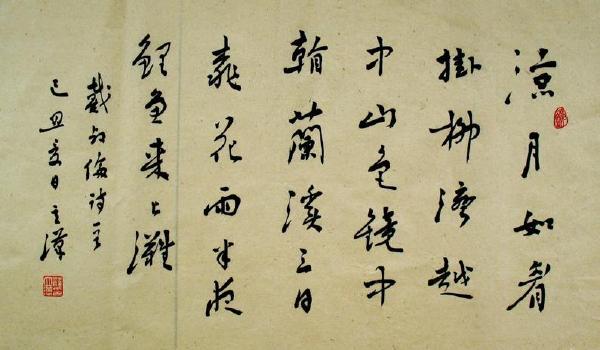 涼月如眉
掛柳灣越
中山色鏡中
看蘭溪三日
桃花雨半夜
鯉魚來上灘
戴叔倫詩
己丑夏日